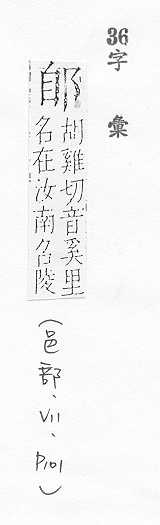 36字彙
郋
胡雞切音奚里
名在汝南召陵
(邑部、VII、P101)